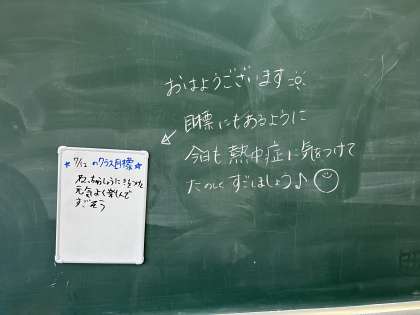 おはようございます
目標にもあるように
今日も熱中症に気をつけて
たのしくすごしましょう♪
★7/12 のクラス目標★
ねっちゅうしょうにきをつけた
元気よく楽しんで
すごそう